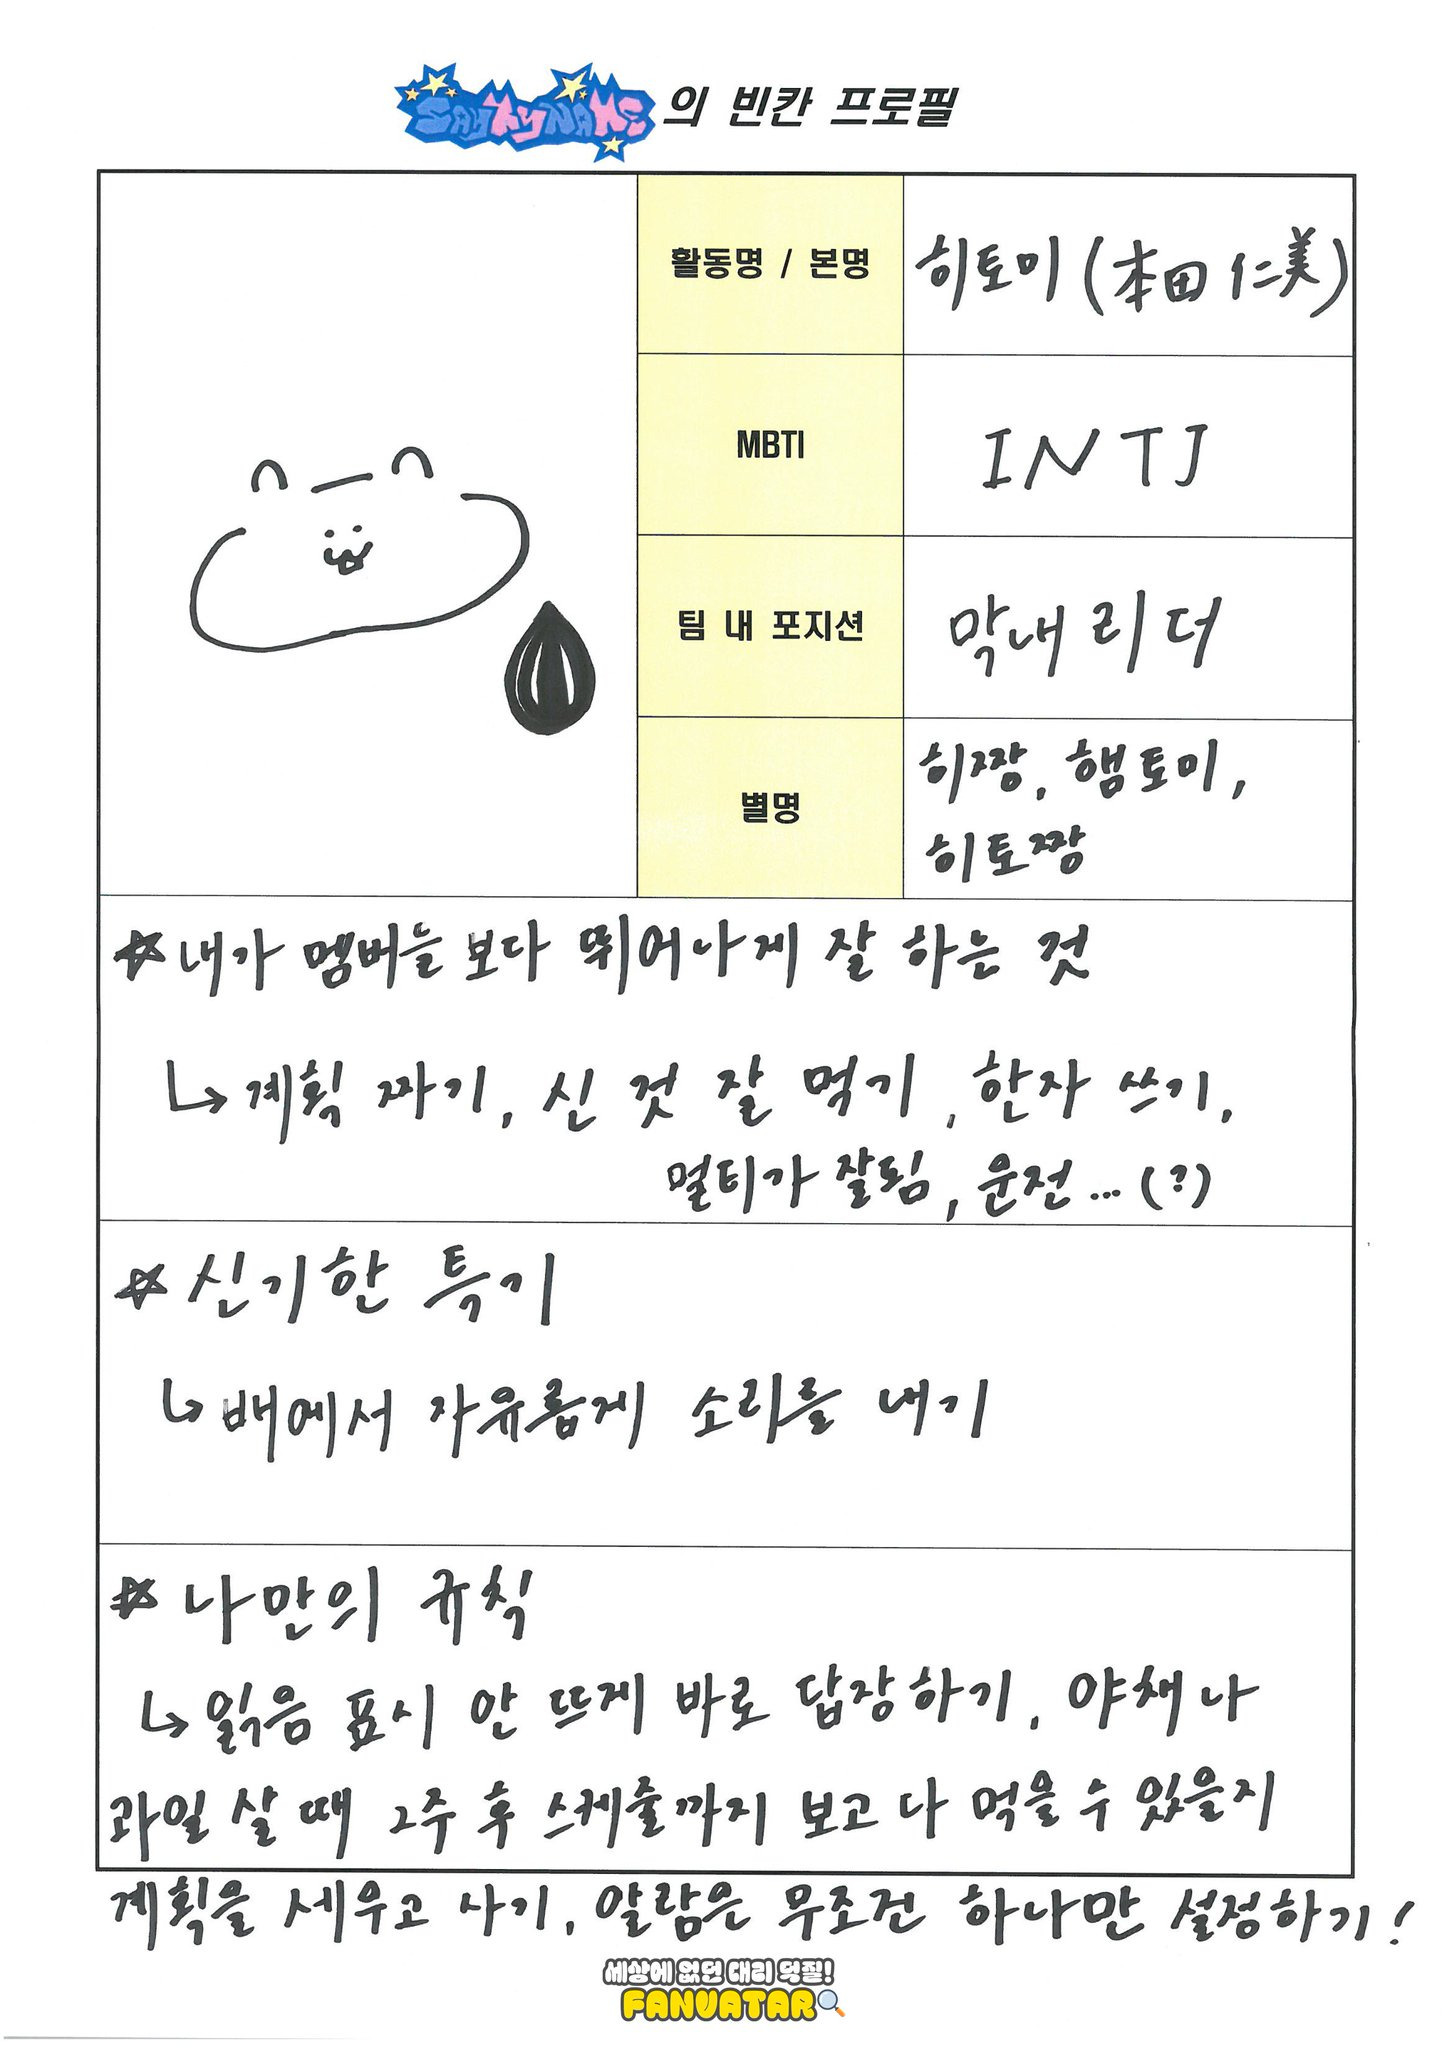 SAY MY NAME 의 빈칸 프로필
활동명 / 본명
히토미 (本田 仁美)
MBTI
INTJ
팀 내 포지션
막내 리더
별명
히짱, 햄토미,
히토짱
☆ 내가 멤버들 보다 뛰어나게 잘 하는 것
↳ 계획 짜기, 신 것 잘 먹기, 한자 쓰기,
멀티가 잘됨, 운전... (?)
☆ 신기한 특기
↳ 배에서 자유롭게 소리를 내기
☆ 나만의 규칙
↳ 읽음 표시 안 뜨게 바로 답장하기, 야채나
과일 살 때 2주 후 스케줄까지 보고 다 먹을 수 있을지
계획을 세우고 사기, 알람은 무조건 하나만 설정하기!
세상에 없던 대리 덕질!
FANVATAR